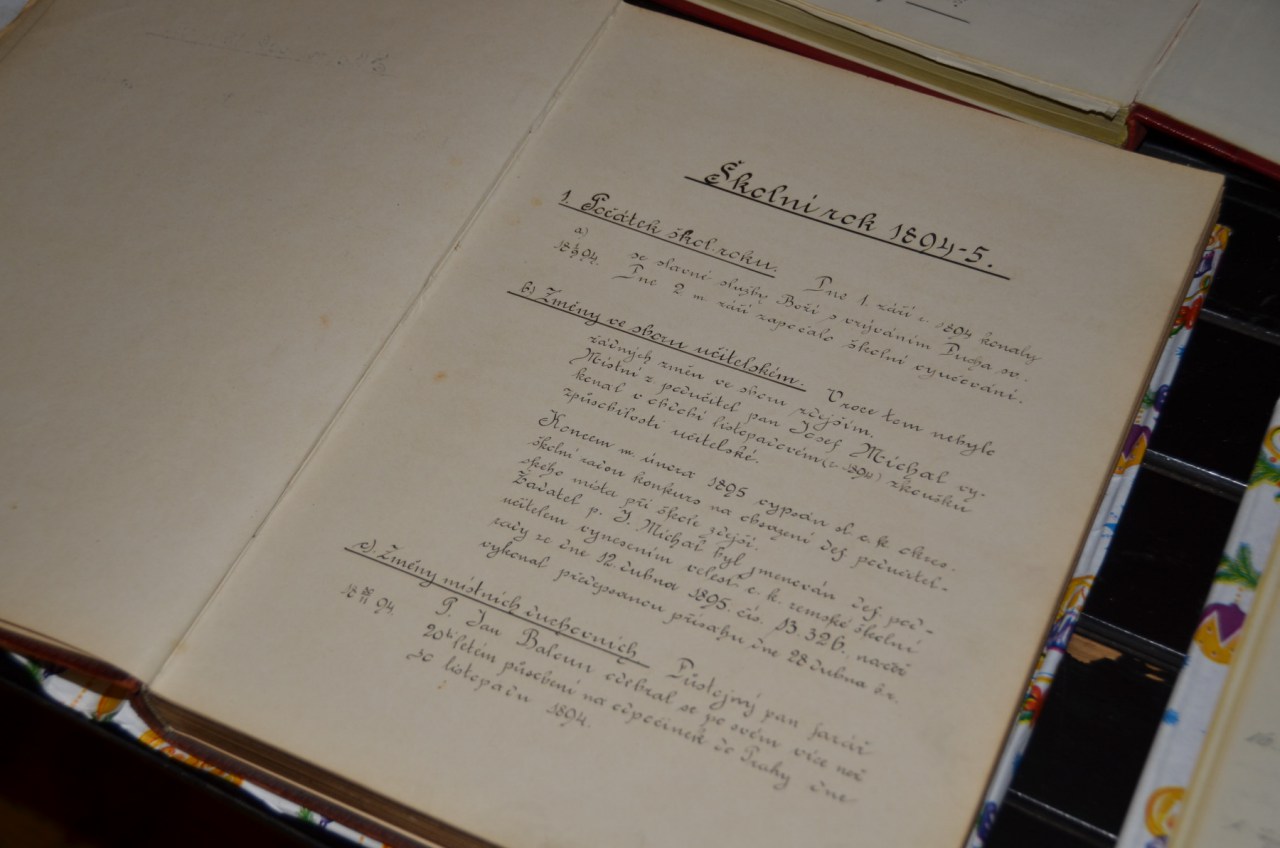 Školní rok 1894-5.
1. Počátek škol. roku. Dne 1. září r. 1894 konaly
a)
18 1/9 94. se slavné služby Boží s vzýváním Ducha sv..
Dne 2. m. září započalo školní vyučování.
b) Změny ve sboru učitelském. V roce tom nebylo
žádných změn ve sboru zdejším.
Místní z. podučitel pan Josef Michal vy-
konal v období listopadovém (r. 894) zkoušku
způsobilosti učitelské.
Koncem m. února 1895 vypsán sl. c. k. okres.
školní radou konkurs na obsazení def. podučitel-
ského místa při škole zdejší.
Žadatel p. J. Michal byl jmenován def. pod-
učitelem vynesením velesl. c. k. zemské školní
rady ze dne 12. dubna 1895. čís. 13.326. načež
vykonal předepsanou přísahu dne 28 dubna t.r.
c). Změny místních duchovních. Důstojný pan farář
94 P. Jan Balcun odebral se po svém více než
20ti letém působení na odpočinek do Prahy dne
30 listopadu 1894.